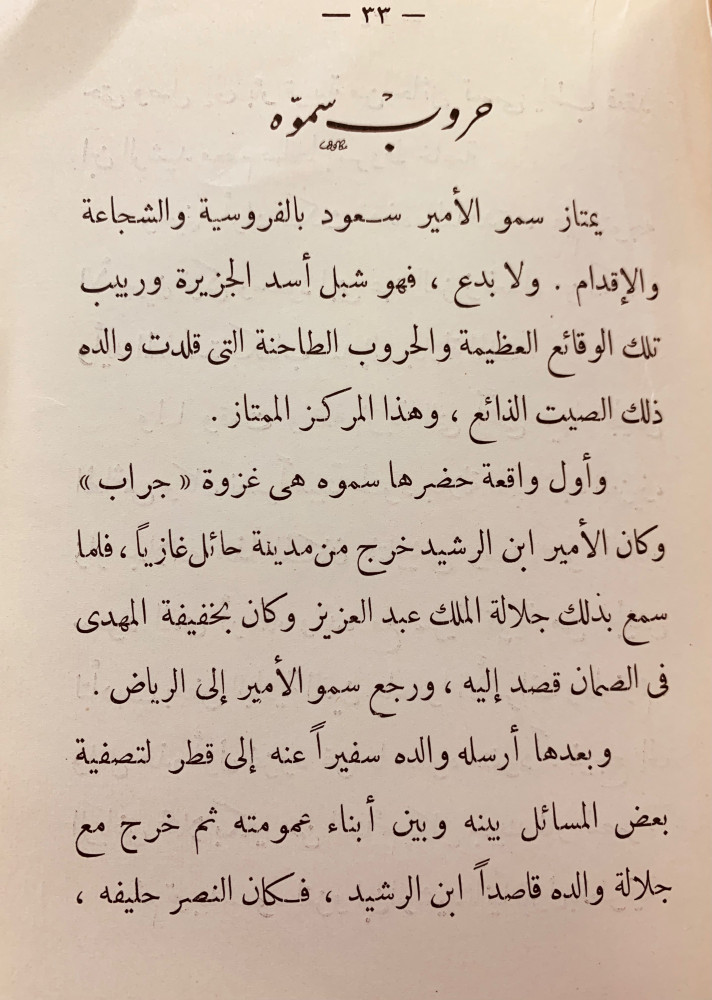 — ٣٣ —
حروب سموّه
يمتاز سمو الأمير سعود بالفروسية والشجاعة
والإقدام . ولا بدع ، فهو شبل أسد الجزيرة وربيب
تلك الوقائع العظيمة والحروب الطاحنة التى قلدت والده
ذلك الصيت الذائع ، وهذا المركز الممتاز .
وأول واقعة حضرها سموه هى غزوة « جراب »
وكان الأمير ابن الرشيد خرج من مدينة حائل غازياً ، فلما
سمع بذلك جلالة الملك عبد العزيز وكان بخفيفة المهدى
فى الصمان قصد إليه ، ورجع سمو الأمير إلى الرياض .
وبعدها أرسله والده سفيراً عنه إلى قطر لتصفية
بعض المسائل بينه وبين أبناء عمومته ثم خرج مع
جلالة والده قاصداً ابن الرشيد ، فكان النصر حليفه ،